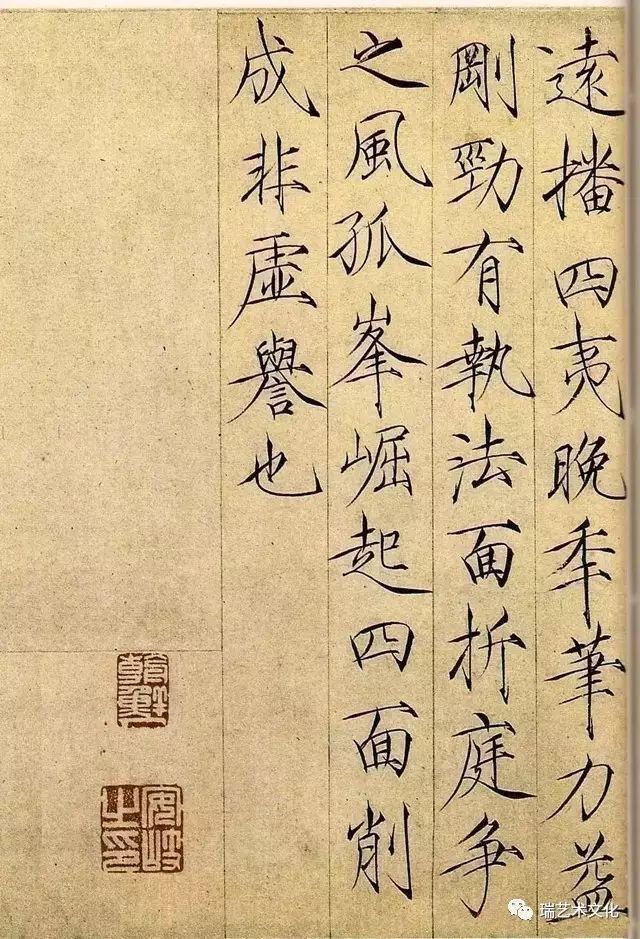 遠播四夷晚季筆力益
剛勁有執法面折庭爭
之風孤峯崛起四面削
成非虛譽也
安岐之印
瑞艺术文化